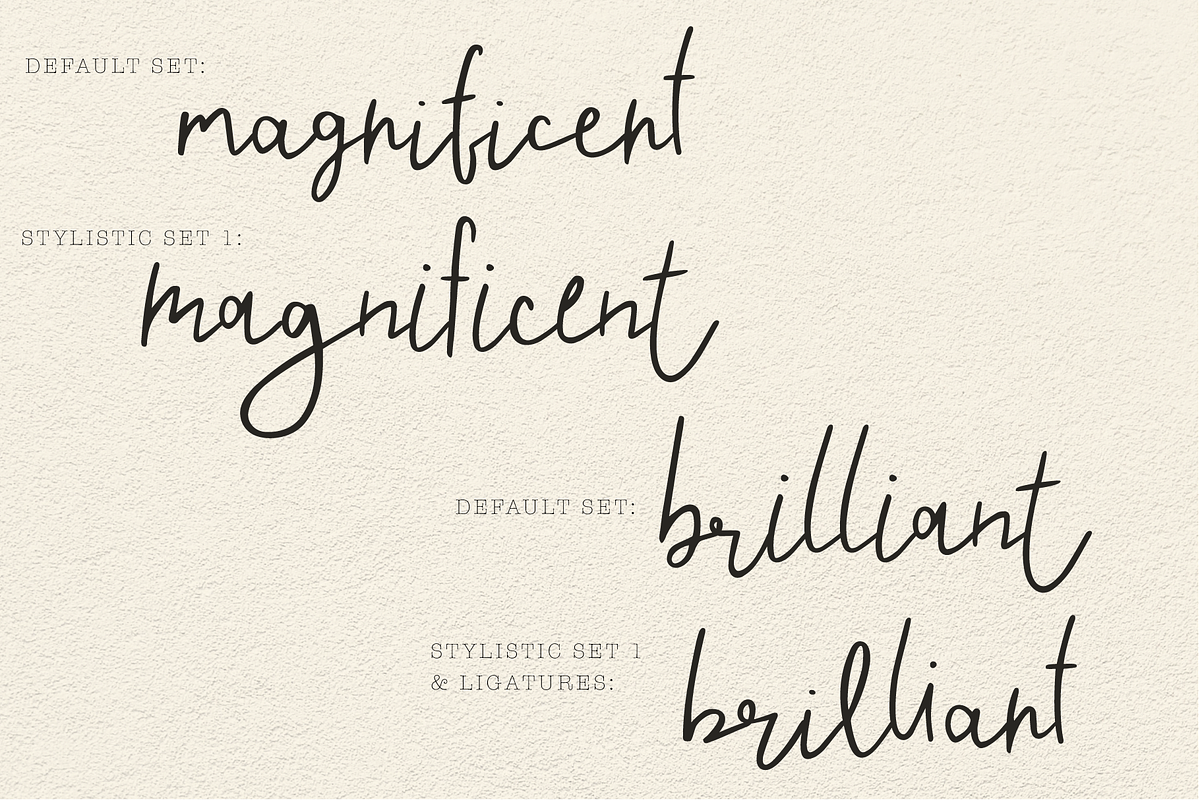 DEFAULT SET:
magnificent
STYLISTIC SET 1:
magnificent
DEFAULT SET:
brilliant
STYLISTIC SET 1
& LIGATURES:
brilliant